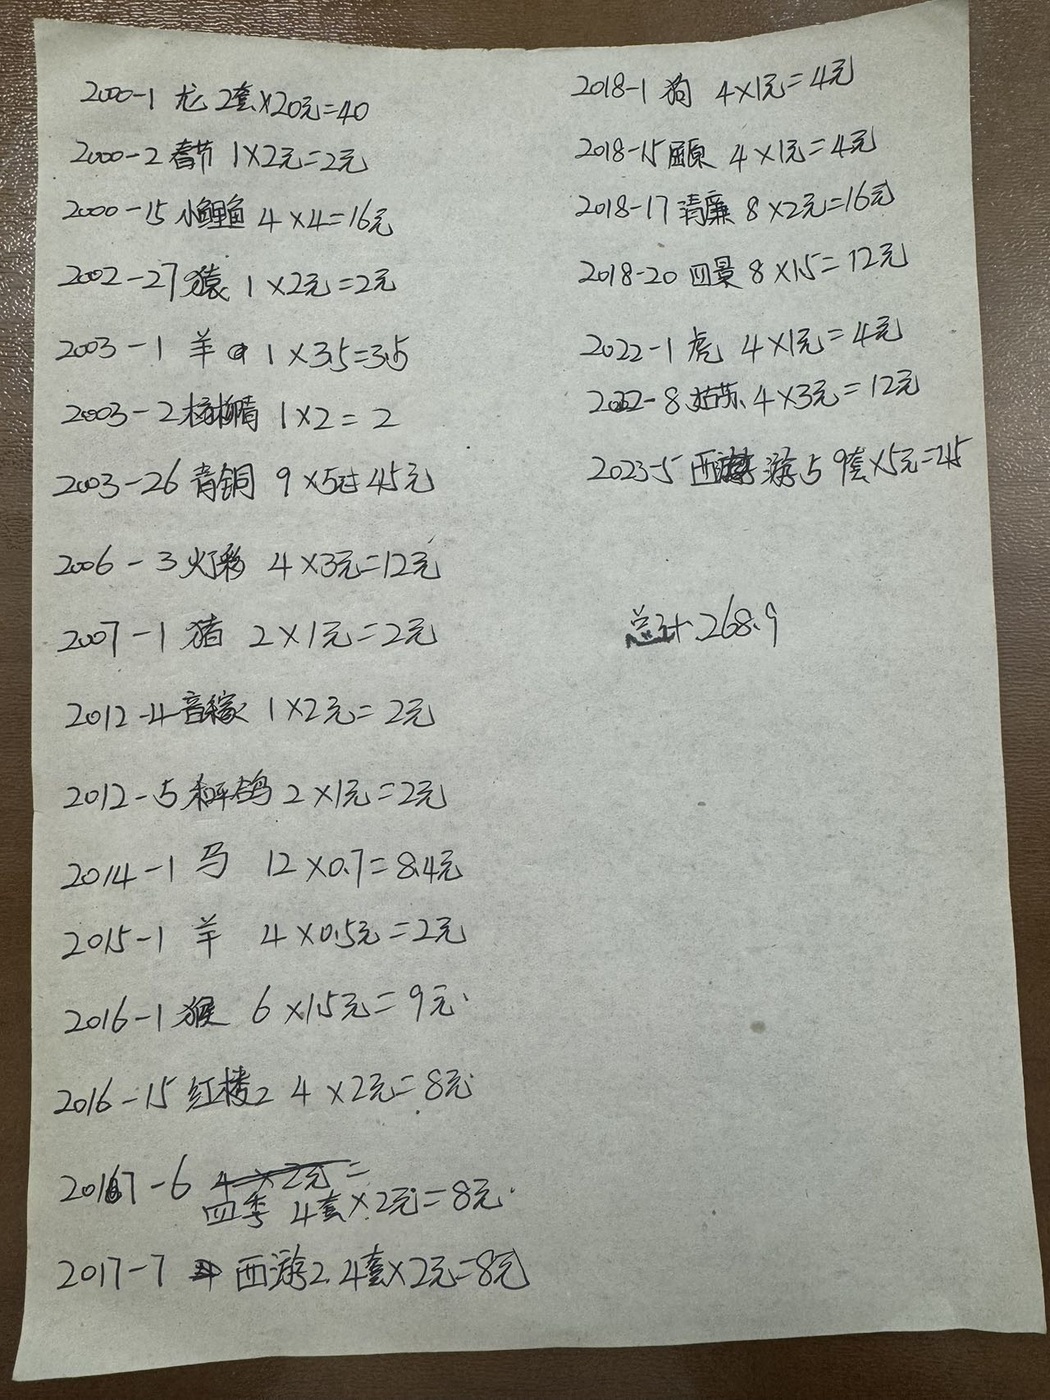 2000-1 龙 2套×20元=40
2000-2 春节 1×2元=2元
2000-15 小鲤鱼 4×4=16元
2002-27 猿 1×2元=2元
2003-1 羊 1×3.5=3.5
2003-2 杨柳青 1×2=2
2003-26 青铜 9×5=45元
2006-3 灯彩 4×3元=12元
2007-1 猪 2×1元=2元
2012-4 1×2元=2元
2012-5 和平鸽 2×1元=2元
2014-1 马 12×0.7=8.4元
2015-1 羊 4×0.5元=2元
2016-1 猴 6×1.5元=9元
2016-15 红楼2 4×2元=8元
2017-6 4×2元=
四季 4套×2元=8元
2017-7 西游2 4套×2元=8元
2018-1 狗 4×1元=4元
2018-15 屈原 4×1元=4元
2018-17 清廉 8×2元=16元
2018-20 四景 8×1.5=12元
2022-1 虎 4×1元=4元
2022-8 姑苏 4×3元=12元
2023-5 西游 游5 9套×5元=45
总计 268.9